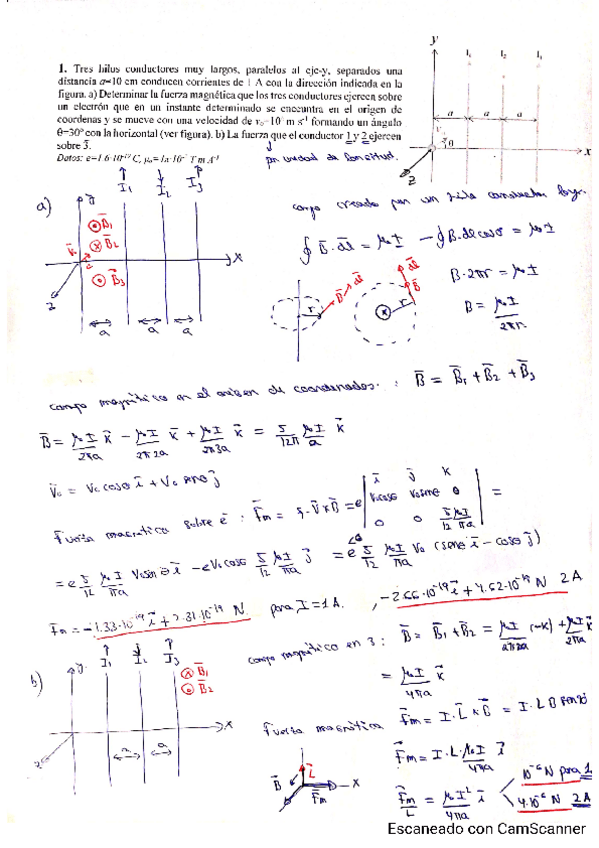 1. Tres hilos conductores muy largos, paralelos al eje-y, separados una
distancia a=10 cm conducen corrientes de 1 A con la dirección indicada en la
figura. a) Determinar la fuerza magnética que los tres conductores ejercen sobre
un electrón que en un instante determinado se encuntra en el origen de
coordenas y se mueve con una velocidad de
formando un ángulo
θ=30º con la horizontal (ver figura). b) La fuerza que el conductor 1 y 2 ejercen
sobre 3.
por unidad de longitud.
y I₁ I₂ I₃
a a a
θ
x
z
a)
y I₁ I₂ I₃
B₁
B₂
B₃
x
z
a a a
campo creado por un hilo conductor
∮ B·dl = μ₀ I
B·2πr = μ₀ I
B = μ₀ I / 2πr
B dl r
campo magnético en el origen de coordenadas: B = B₁ + B₂ + B₃
B = μ₀ I / 2πa k − μ₀ I / 2π2a k + μ₀ I / 2π3a k = 5/12π μ₀ I / a k
V₀ = V₀ cosθ i + V₀ senθ j
Fuerza magnética sobre e⁻: Fm = q·V×B = e
i j k
V₀cosθ V₀senθ 0
0 0 5/12 μ₀ I / πa
=
= e 5/12 μ₀ I / πa V₀ sinθ i − e V₀ cosθ 5/12 μ₀ I / πa j = e 5/12 μ₀ I / πa V₀ (senθ i − cosθ j)
Fm = −1.33·10⁻¹⁹ i + 2.31·10⁻¹⁹ N para I = 1 A. , −2.66·10⁻¹⁹ i + 4.62·10⁻¹⁹ N 2 A
b)
y I₁ I₂ I₃
B₁
B₂
x
z
a a
campo magnético en 3: B = B₁ + B₂ = μ₀ I / 2π2a (−k) + μ₀ I / 2πa
= μ₀ I / 4πa k
Fuerza magnética Fm = I·L×B = I·L B
Fm = I·L·μ₀ I / 4πa i
Fm / L = μ₀ I² / 4πa i
10⁻⁶ N para 1
4·10⁻⁶ N 2A
B L Fm x
Escaneado con CamScanner